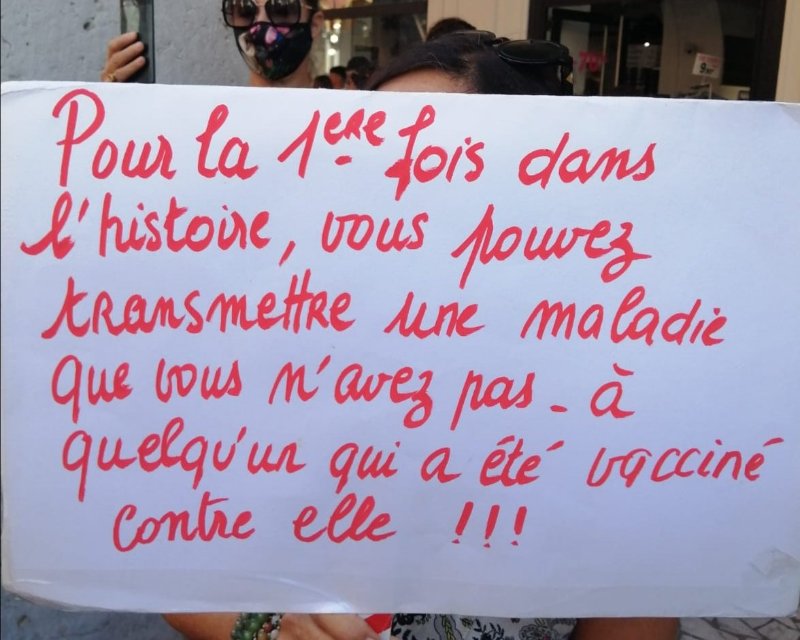 Pour la 1ère fois dans
l'histoire, vous pouvez
transmettre une maladie
que vous n'avez pas - à
quelqu'un qui a été vacciné
contre elle !!!